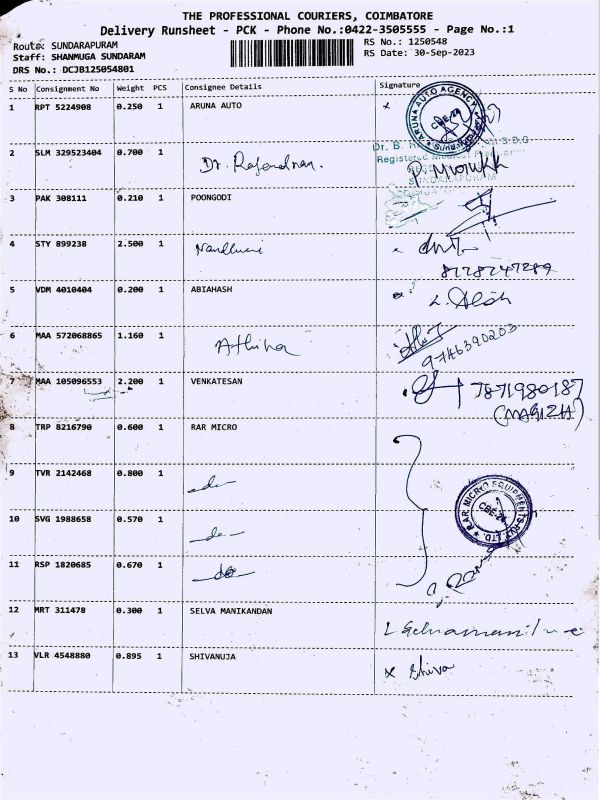 THE PROFESSIONAL COURIERS, COIMBATORE
Delivery Runsheet - PCK - Phone No.:0422-3505555 - Page No.:1
Route: SUNDARAPURAM
RS No.: 1250548
Staff: SHANMUGA SUNDARAM
RS Date: 30-Sep-2023
DRS No.: DCJB125054801
S No Consignment No Weight PCS Consignee Details Signature
1 RPT 5224908 0.250 1 ARUNA AUTO x
ARUNA AUTO AGENCY CBE-24
2 SLM 329523404 0.700 1 Dr. Rajendran.
Dr. B.
Registered Medical
3 PAK 308111 0.210 1 POONGODI
4 STY 899238 2.500 1
5 VDM 4010404 0.200 1 ABIAHASH
6 MAA 572068865 1.160 1 Athira
9746390203
7 MAA 105096553 2.200 1 VENKATESAN 7871980187
8 TRP 8216790 0.600 1 RAR MICRO
9 TVR 2142468 0.800 1 do
RAR MICRO EQUIPMENTS CBE-24
10 SVG 1988658 0.570 1 do
11 RSP 1820685 0.670 1 do
12 MRT 311478 0.300 1 SELVA MANIKANDAN
13 VLR 4548880 0.895 1 SHIVANUJA x Shiva